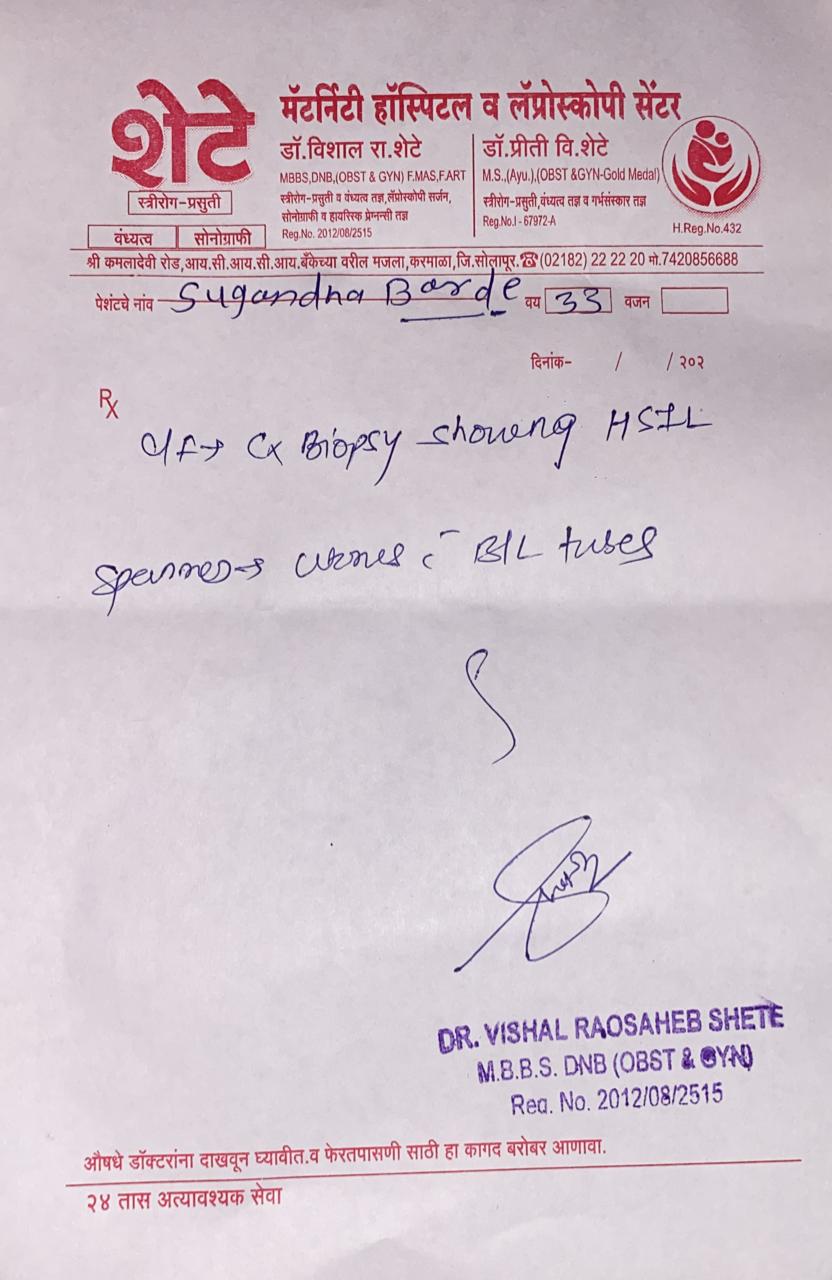 शेटे
मॅटर्निटी हॉस्पिटल व लॅप्रोस्कोपी सेंटर
स्त्रीरोग-प्रसुती
वंध्यत्व
सोनोग्राफी
डॉ.विशाल रा.शेटे
MBBS,DNB,(OBST & GYN) F.MAS,F.ART
स्त्रीरोग-प्रसुती व वंध्यत्व तज्ञ,लॅप्रोस्कोपी सर्जन,
सोनोग्राफी व हायरिस्क प्रेग्नन्सी तज्ञ
Reg.No. 2012/08/2515
डॉ.प्रीती वि.शेटे
M.S.,(Ayu.),(OBST &GYN-Gold Medal)
स्त्रीरोग-प्रसुती,वंध्यत्व तज्ञ व गर्भसंस्कार तज्ञ
Reg.No.I - 67972-A
H.Reg.No.432
श्री कमलादेवी रोड,आय.सी.आय.सी.आय.बँकेच्या वरील मजला,करमाळा,जि.सोलापूर.☎(02182) 22 22 20 मो.7420856688
पेशंटचे नांव Sugandha Barde वय 33 वजन
दिनांक- / / २०२
Rx
Cx Biopsy showing HSIL
B/L tubes
DR. VISHAL RAOSAHEB SHETE
M.B.B.S. DNB (OBST & GYN)
Reg. No. 2012/08/2515
औषधे डॉक्टरांना दाखवून घ्यावीत.व फेरतपासणी साठी हा कागद बरोबर आणावा.
२४ तास अत्यावश्यक सेवा